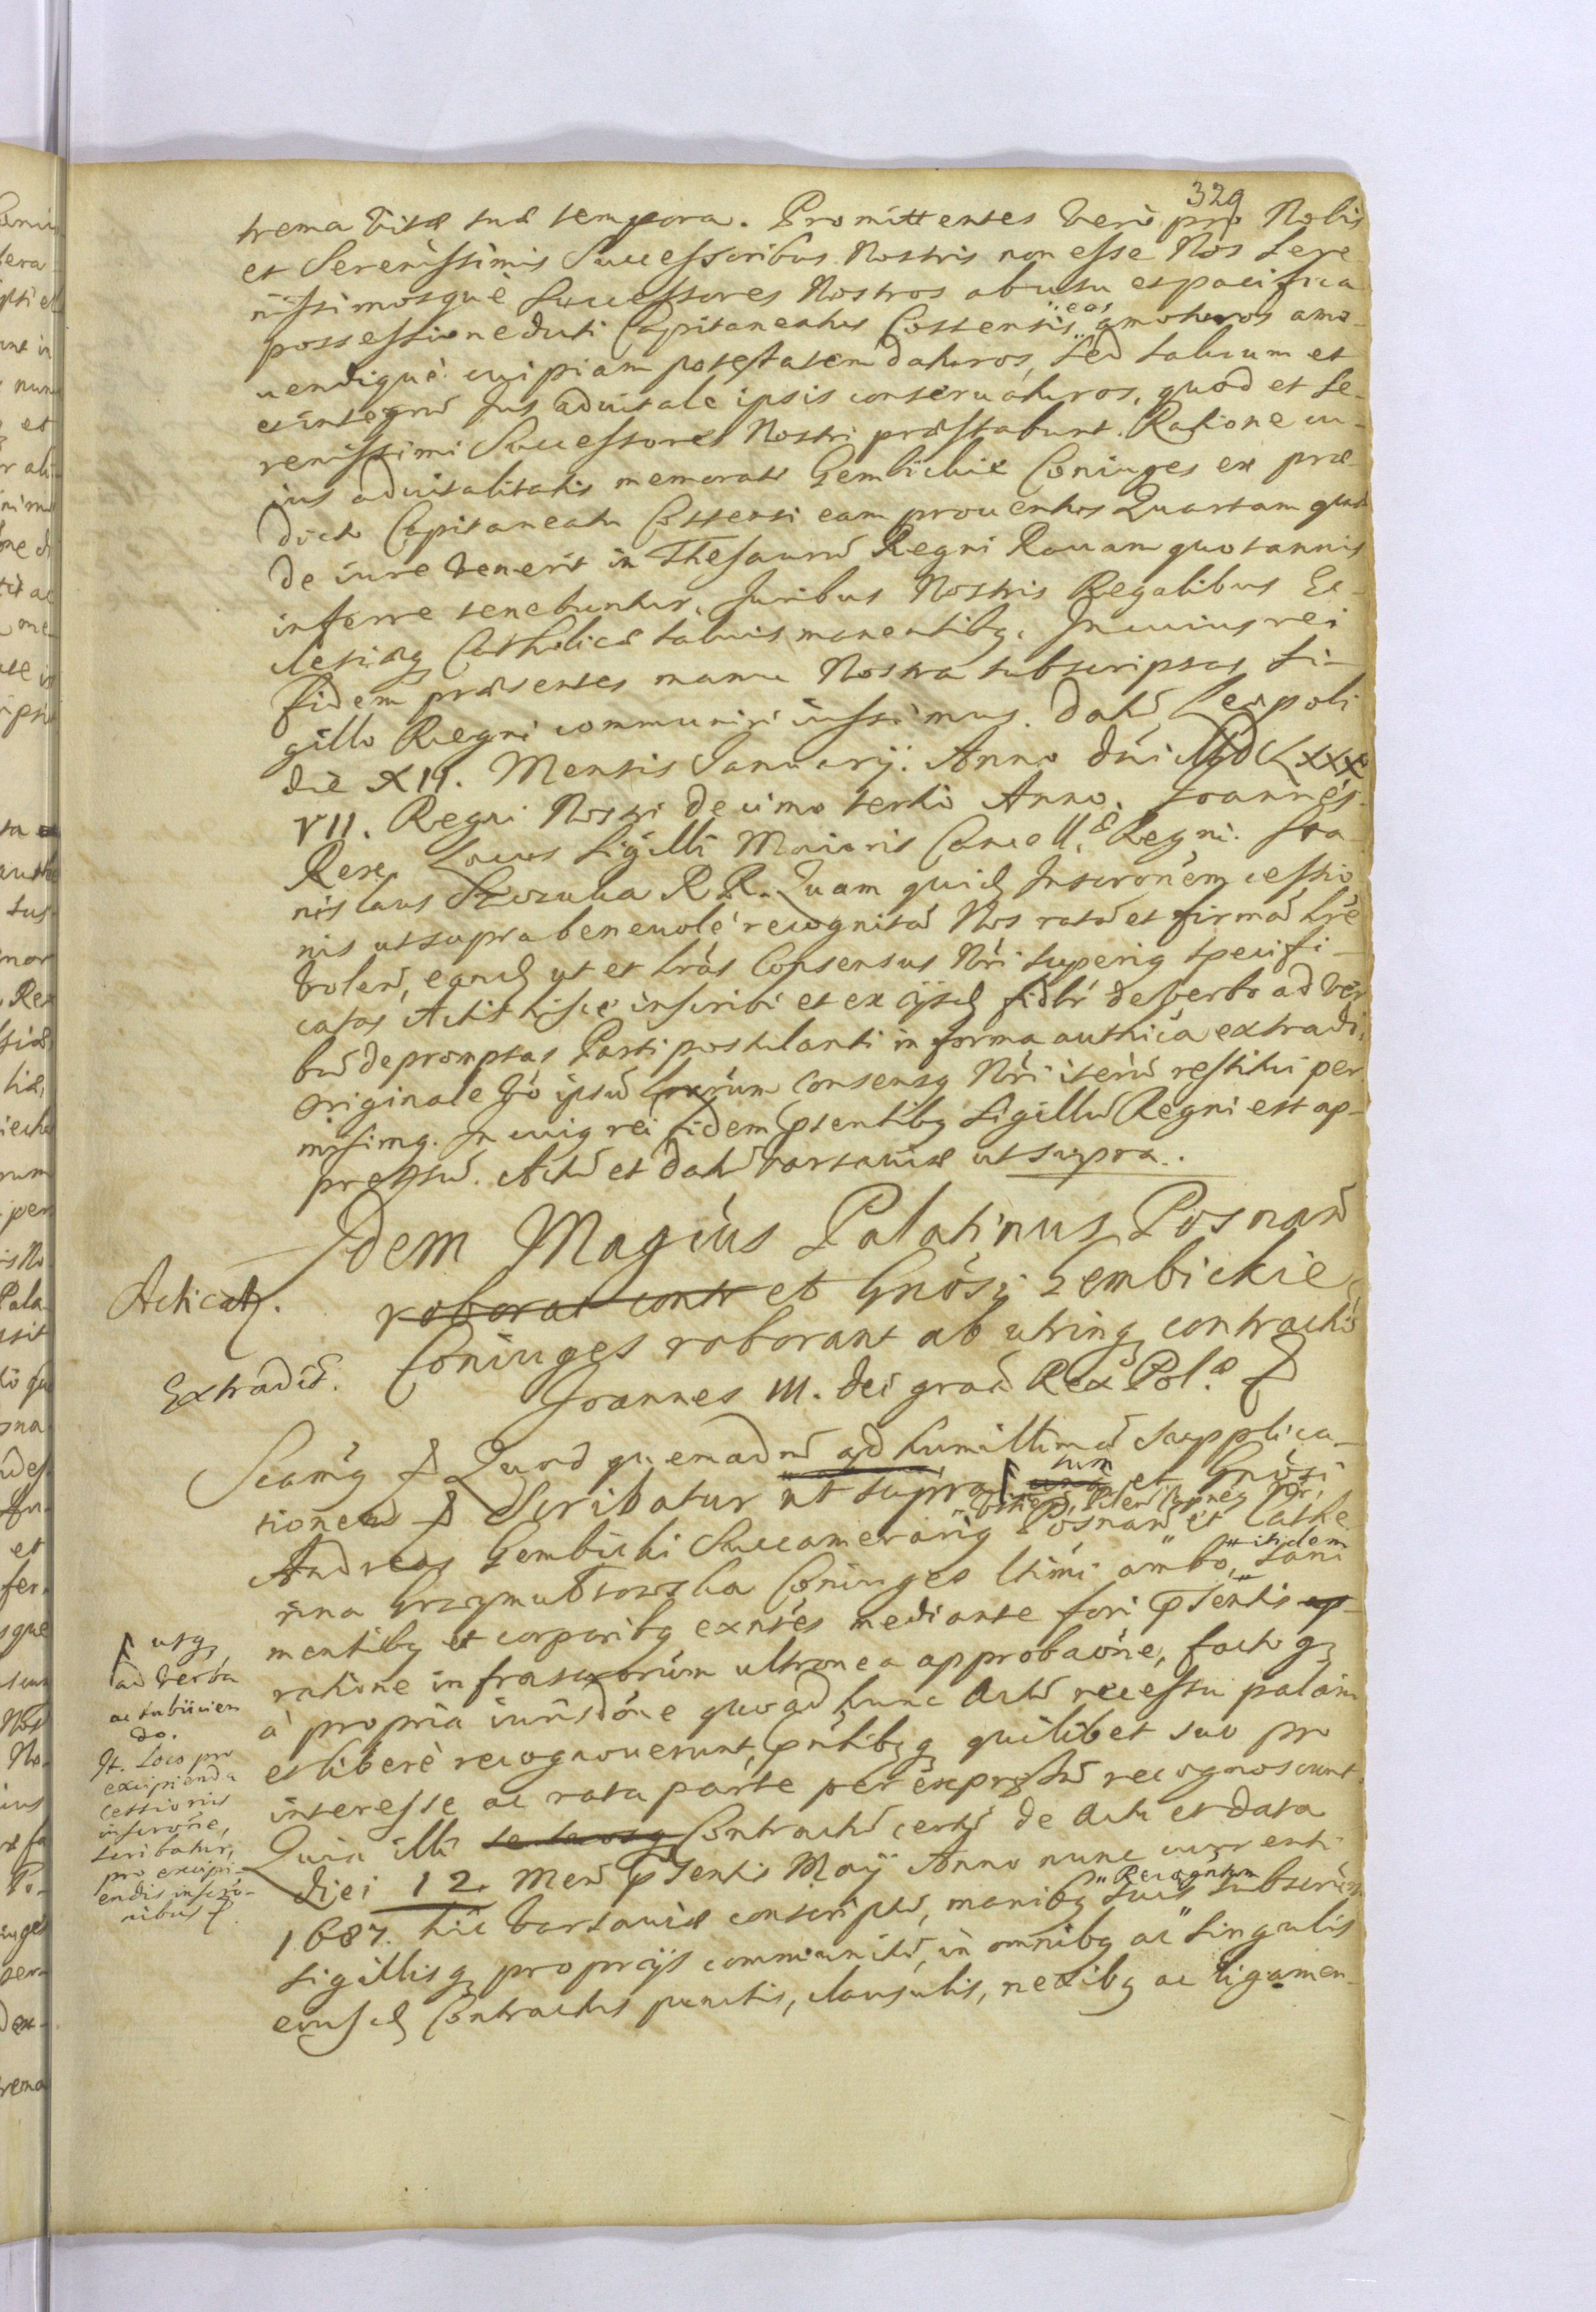 329
trema vitæ suæ tempora. Promittentes verò pro Nobis
et Serenissimis Successoribus Nostris non esse Nos Sere
nissimosquè Successores Nostros ab usu et pacifica
possessione dicti Capitaneatus Costensis eos amoturos amo-
uendiquè cuipiam potestatem daturos, sed saluum et
et integrũ Jus aduitale ipsis conseruaturos, quod et Se-
renissimi Successores Nostri præstabunt. Ratione cu-
ius aduitalitatis memorati Gembickie Coniuges ex præ-
dicto Capitaneatu Costensi eam prouentus Quartam quæ
de iure venerit in Thesaurũ Regni Rauam quotannis
inferre tenebuntur, Juribus Nostris Regalibus Ec-
clesiæq Catholicæ saluis manentibq. In cuius rei
fidem præsentes manu Nostra subscriptas Si-
gillo Regni communiri iussimus. Datũ Leopoli
die XII. Mensis Januarij. Anno Dńi MDCLXXX
VII. Regni Nostri decimo tertio Anno. Joannes
Rex. Locus Sigilli Maioris Cancell. Regni. Sta
nislaus Szczuka R R. Quam quid Inscrōnem cessio
nis ut supra beneuolè recognitã Nos ratã et firmã hrē
volen, eand ut et lrás Consensus Nri superiq specifi-
catas Actis hisce inscribi et ex ijsd fidlr de verbo ad ver
bũ depromptas Parti postulanti in forma authīca extradi,
originale vō ipsũ lrarum consensq Nri iterũ restitui per
misimq. In cuiq rei fidem pſentibq Sigillũ Regni est ap-
pressũ. Actũ et Datũ Varsauiæ ut supra.
Idem Magcus Palatinus Posnan
roborat contr et Gnosi Gembickie
Coniuges roborant ab utrinq contractũ
Acticat.
Extradit.
Joannes III. Dei gratia Rex Pol. &
Seamq & Quod quemadm ad humillimã supplica-
tionem & Scribatur ut supra tum et Gnosi
Andreas Gembicki Succamerariq Posnan et Cathe
rina Grzymułtowska Coniuges ltimi ambo, itidem sani
mentibq et corporibq exntés mediante fori pſentis ap
ratione infrascrorum ultronea approbaōne, factoq
à propria iurisdōne quoad hunc Actũ recessu palàm
et liberè recognouerunt, pntibqq quilibet suo pro
interesse ac rata parte per expressũ recognoscunt.
Quia illi Contractũ certũ de Actu et data
diei 12. Men pſentis Maij Anno nunc currenti
1687. hîc Varsauiæ conscriptũ, manibq suis Recognñum subscriptũ
sigillisq proprijs communitũ, in omnibq ac singulis
eiusd Contractus punctis, clausulis, nexibq ac ligamen-
usq
ad verba
ac subijcien
do.
It. loco pro
excipienda
cessionis
inscrōne,
scribatur,
pro excipi-
endis inscrō-
nibus &.